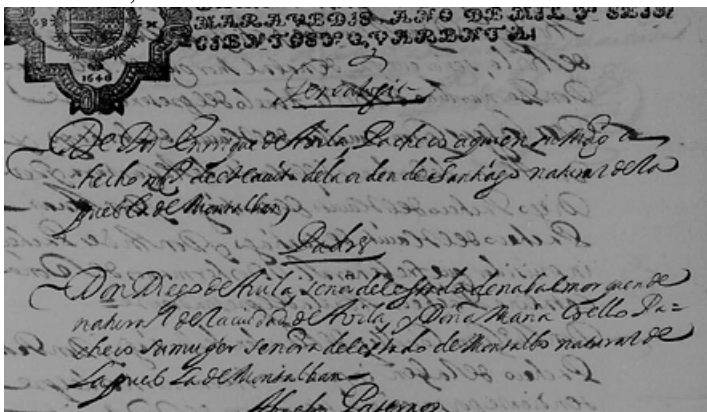 MARAVEDIS, AÑO DE MIL Y SEIS
CIENTOS Y QVARENTA.
1640
Genealogia
De Don Enrrique de Avila, Pacheco a quien su Magd a
hecho md de el Havito de la orden de Santiago natural de la
puebla de Montalban,
Padres
Don Diego de Avila, señor del estado de nabalmorquende
natural de la ciudad de Avila, y Doña Maria Coello Pa=
checo su muger señora del estado de Montalbo natural de
La puebla de Montalban
Abuelos Paternos